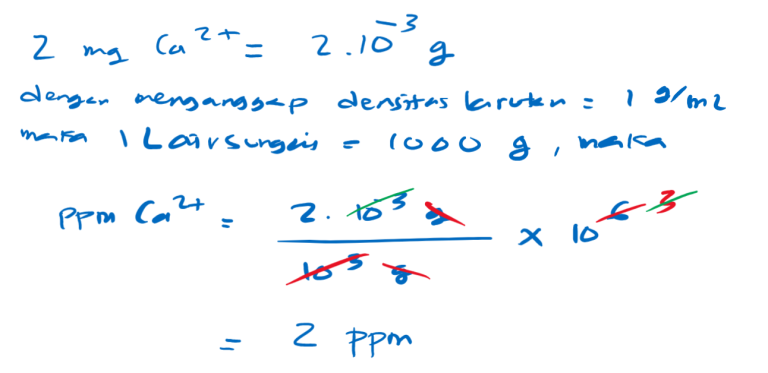 2 mg Ca²⁺ = 2.10⁻³ g
dengan menganggap densitas larutan = 1 g/mL
maka 1 L air sungai = 1000 g, maka
ppm Ca²⁺ = 2. 10⁻³ g / 10³ g × 10⁶ 3
= 2 ppm